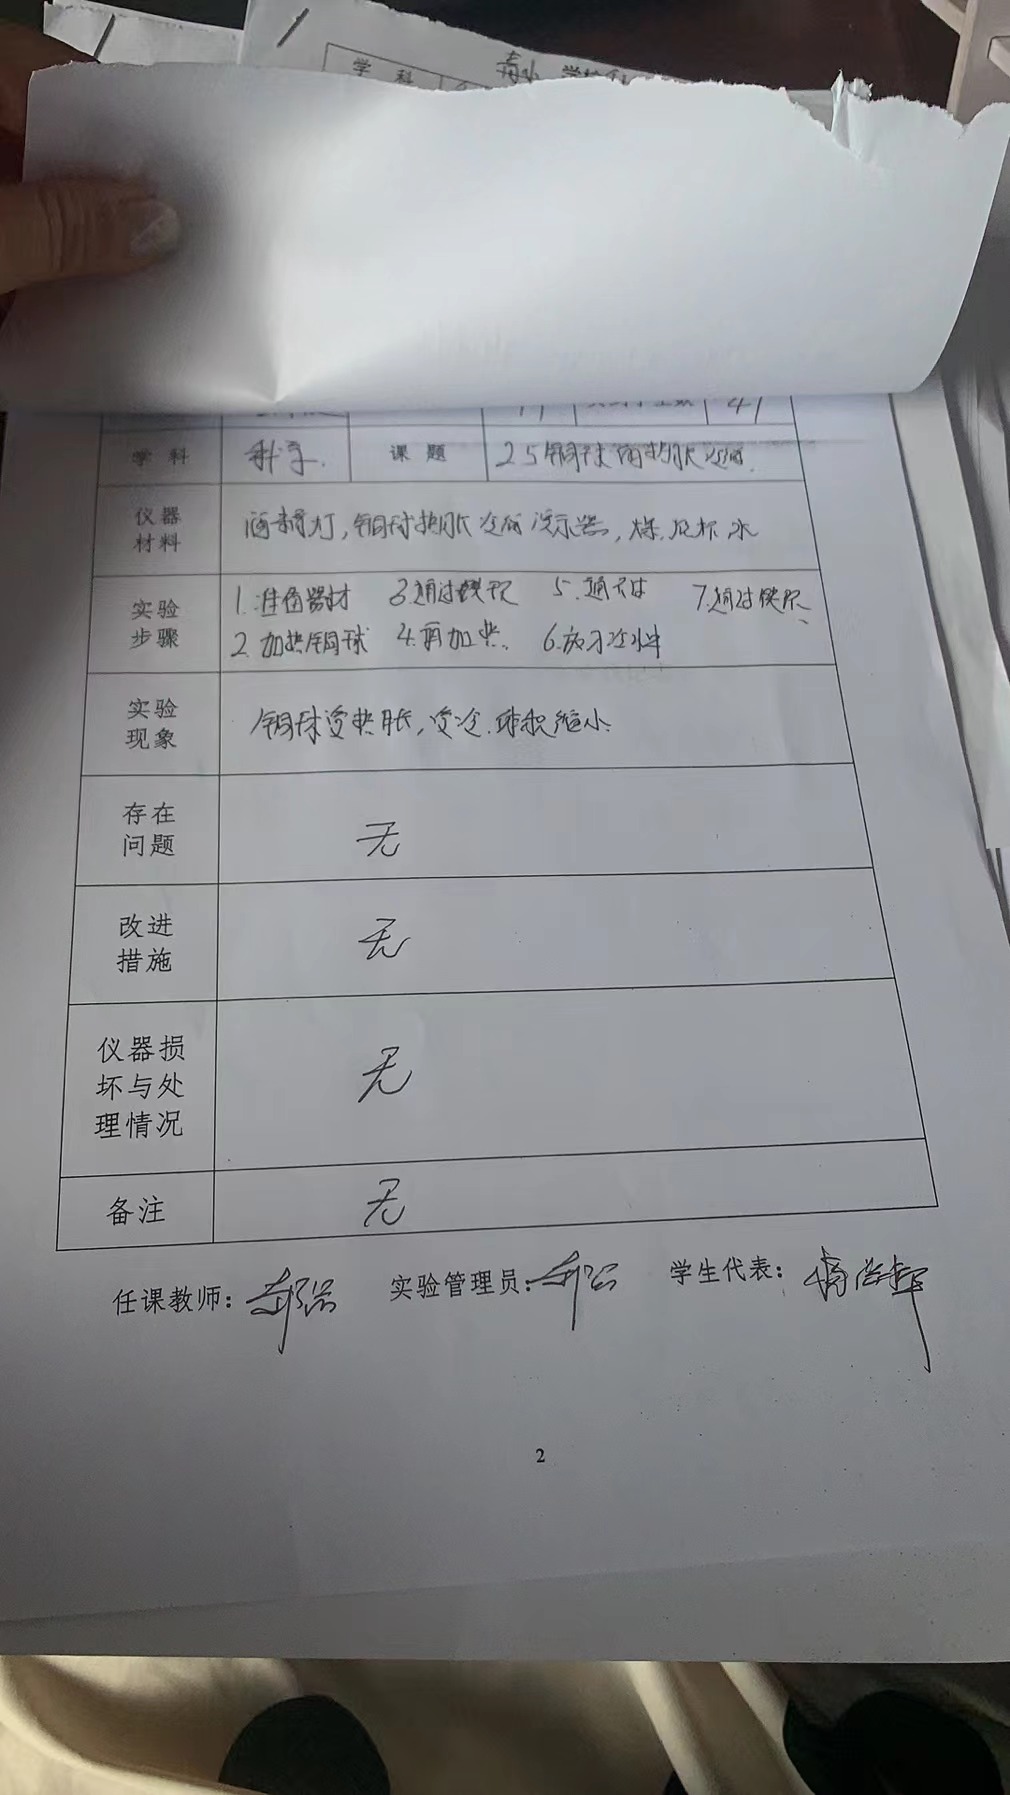 学 科
41
学 科 科学. 课 题 25铜球的热胀冷缩.
仪器
材料
酒精灯,铜球热胀冷缩演示器,烧杯,水
实验
步骤
1.准备器材 3.通过铁环 5.通不过 7.通过铁环、
2.加热铜球 4.再加热. 6.放习冷水中
实验
现象
铜球受热胀,受冷.球积缩小.
存在
问题
无
改进
措施
无
仪器损
坏与处
理情况
无
备注 无
任课教师: 实验管理员: 学生代表:
2